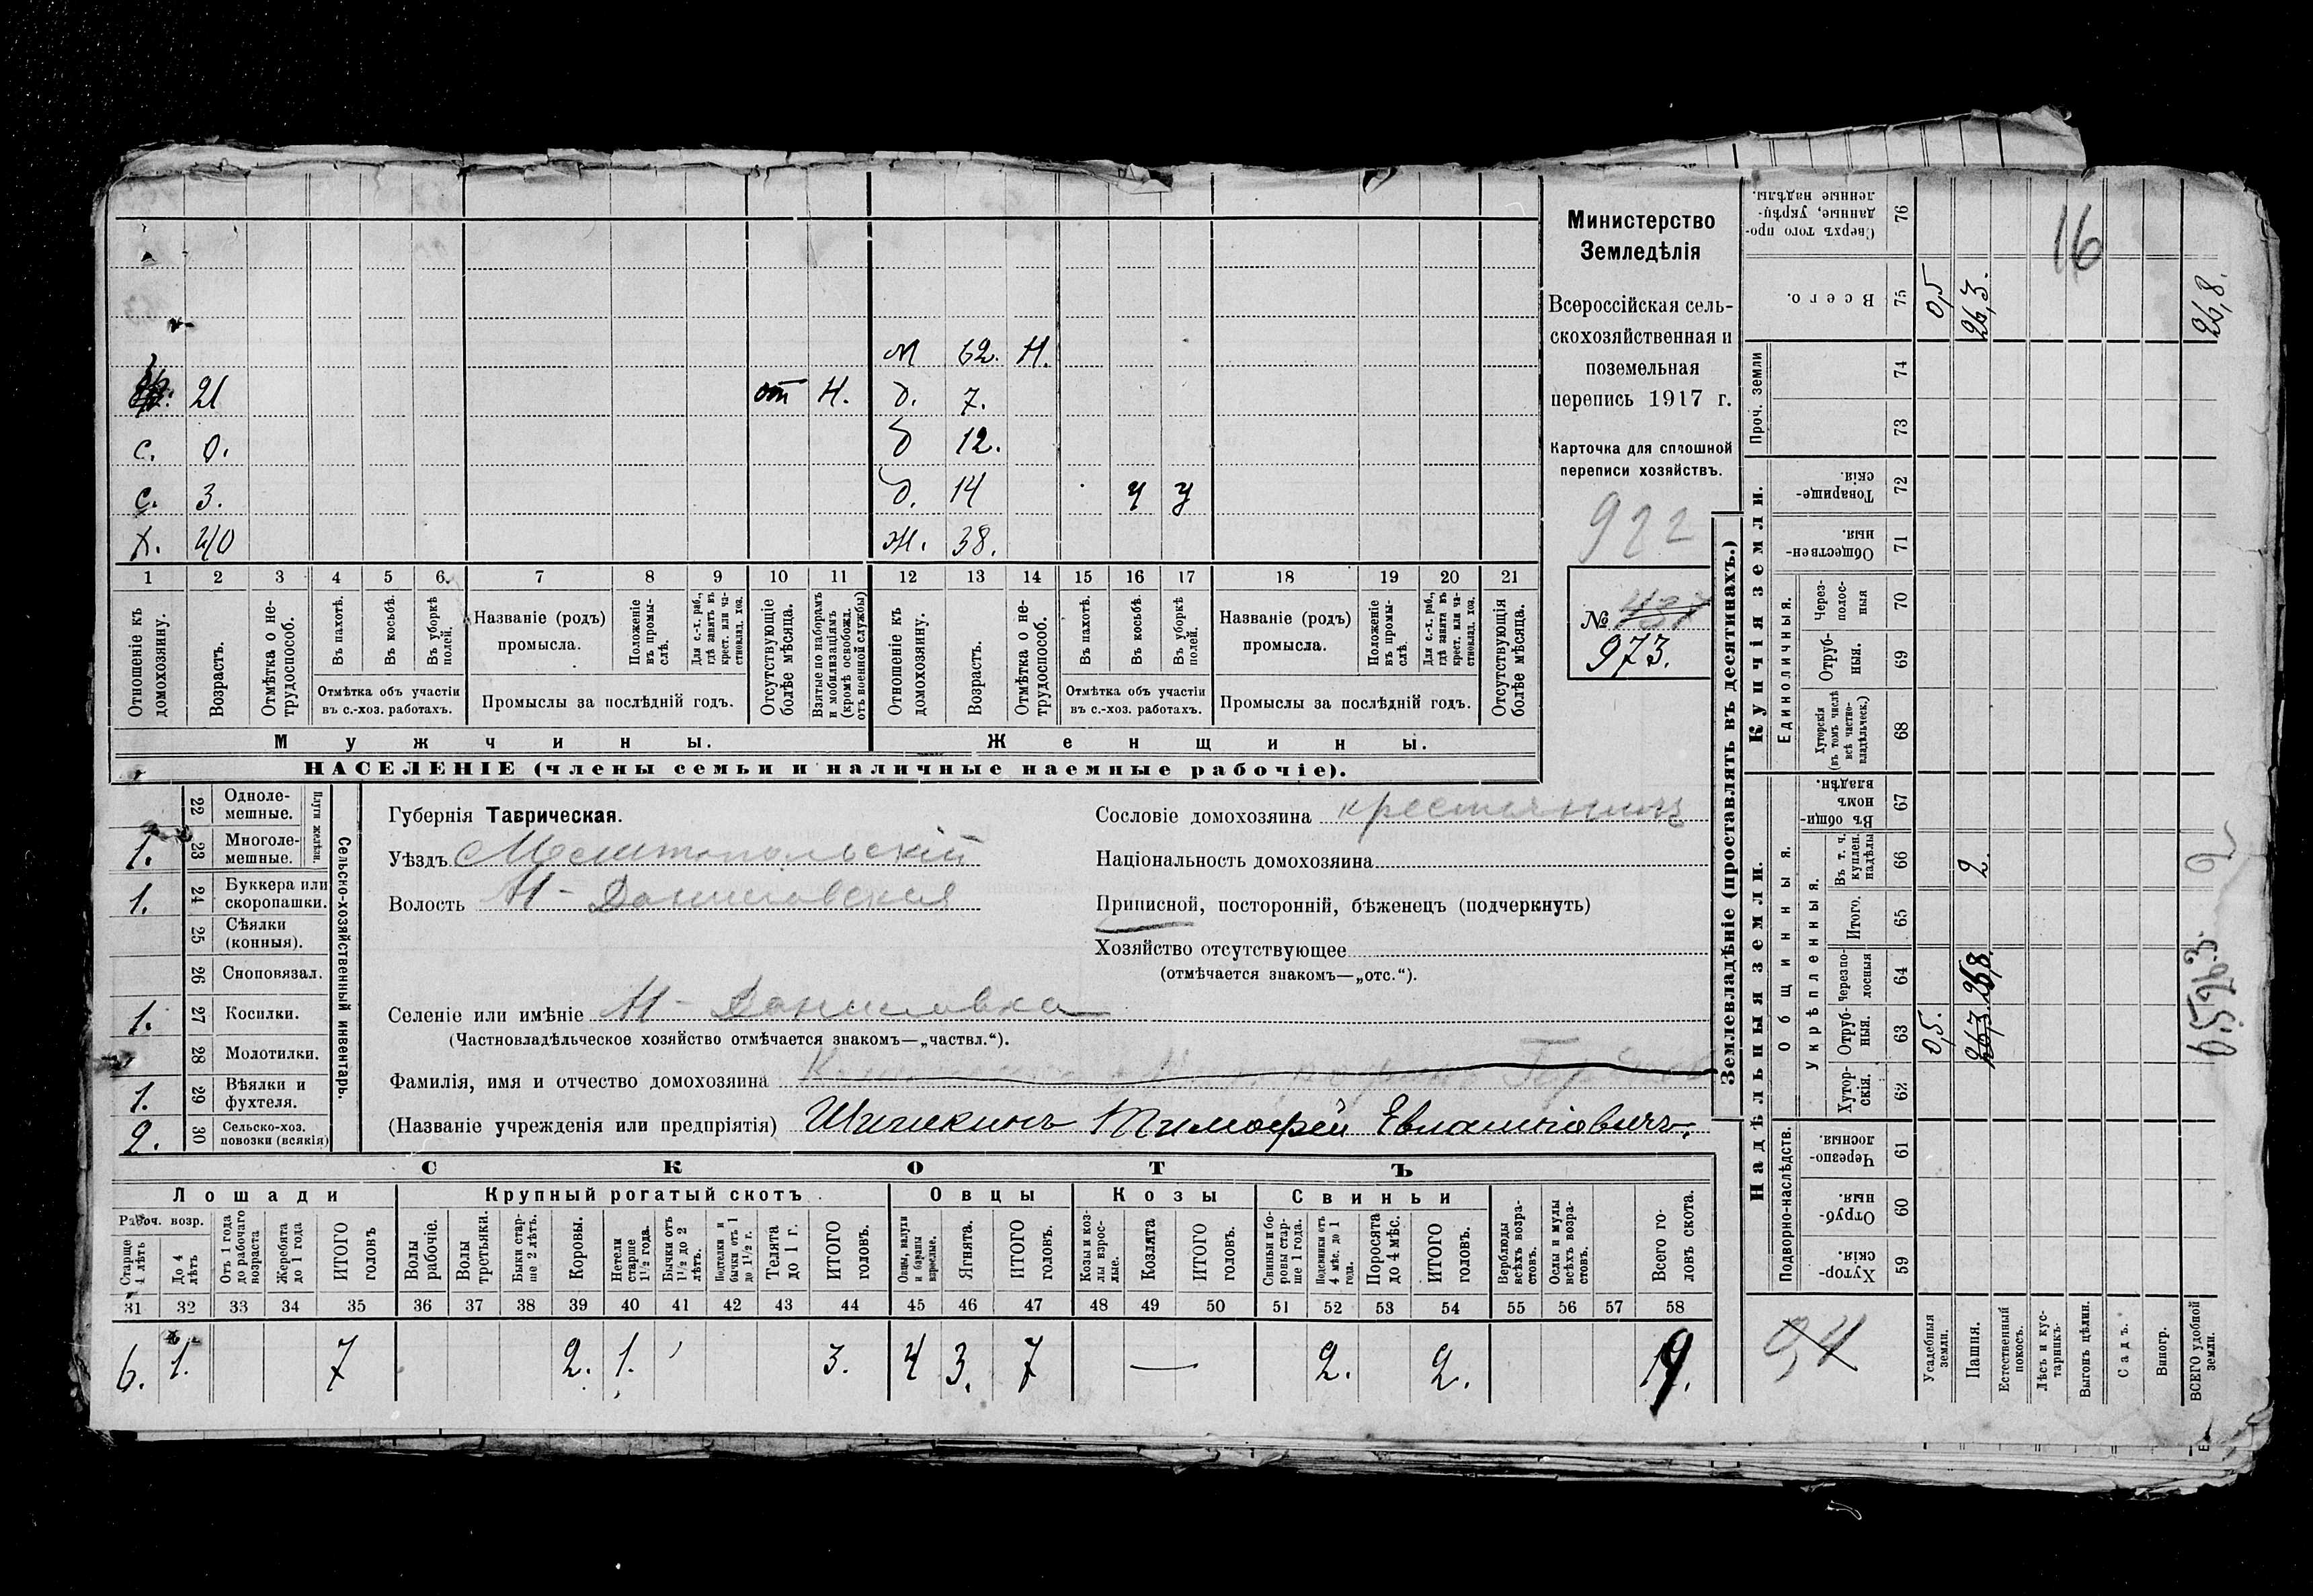 м 62. Н.
21 от Н. д. 7.
с. 0. д 12.
с. 3. д. 14 ч у
х. 40 ж. 38.
1 2 3 4 5 6. 7 8 9 10 11 12 13 14 15 16 17 18 19 20 21
Отношеніе къ домохозяину.
Возрастъ.
Отмѣтка о не-трудоспособ.
Въ пахотѣ.
Въ косьбѣ.
Въ уборкѣ полей.
Отмѣтка объ участіи
въ с.-хоз. работахъ.
Названіе (родъ)
промысла.
Положеніе въ промы-слѣ.
Для с.-х. раб., гдѣ занятъ въ крест. или ча-стновлад. хоз.
Промыслы за послѣдній годъ.
Отсутствующіе болѣе мѣсяца.
Взятые по наборамъ и мобилизаціямъ (кромѣ освобожд. отъ военной службы)
Отношеніе къ домохозяину.
Возрастъ.
Отмѣтка о не-трудоспособ.
Въ пахотѣ.
Въ косьбѣ.
Въ уборкѣ полей.
Отмѣтка объ участіи
въ с.-хоз. работахъ.
Названіе (родъ)
промысла.
Положеніе въ промы-слѣ.
Для с.-х. раб., гдѣ занята въ крест. или ча-стновлад. хоз.
Промыслы за послѣдній годъ.
Отсутствующія болѣе мѣсяца.
Мужчины. Женщины.
НАСЕЛЕНІЕ (члены семьи и наличные наемные рабочіе).
Министерство
Земледѣлія
Всероссійская сель-
скохозяйственная и
поземельная
перепись 1917 г.
Карточка для сплошной
переписи хозяйствъ.
922
№ 437
973.
22 Одноле-мешные.
1. 23 Многоле-мешные.
Плуги желѣзн.
1. 24 Буккера или скоропашки.
25 Сѣялки (конныя).
26 Сноповязал.
1. 27 Косилки.
28 Молотилки.
1. 29 Вѣялки и фухтеля.
2. 30 Сельско-хоз. повозки (всякія)
Сельско-хозяйственный инвентарь.
Губернія Таврическая.
Уѣздъ Мелитопольскій
Волость Н-Даниловская
Сословіе домохозяина крестьянинъ
Національность домохозяина
Приписной, посторонній, бѣженецъ (подчеркнуть)
Хозяйство отсутствующее
(отмѣчается знакомъ—„отс.“).
Селеніе или имѣніе Н-Даниловка
(Частновладѣльческое хозяйство отмѣчается знакомъ—„частвл.“).
Фамилія, имя и отчество домохозяина
(Названіе учрежденія или предпріятія) Шишкинъ Тимофей Евлампіовичъ.
СКОТЪ
Лошади Крупный рогатый скотъ Овцы Козы Свиньи
Рабоч. возр.
Старше 4 лѣтъ
До 4 лѣтъ
Отъ 1 года до рабочаго возраста
Жеребята до 1 года
ИТОГО головъ
Волы рабочіе.
Волы третьяки.
Быки стар-ше 2 лѣтъ.
Коровы.
Нетели старше 1½ года.
Бычки отъ 1½ до 2 лѣтъ.
Подтелки и бычки отъ 1 до 1½ г.
Телята до 1 г.
ИТОГО головъ.
Овцы, валухи и бараны взрослые.
Ягнята.
ИТОГО головъ.
Козы и коз-лы взрос-лые.
Козлята
ИТОГО головъ.
Свиньи и бо-ровы стар-ше 1 года.
Подсвинки отъ 4 мѣс. до 1 года.
Поросята до 4 мѣс.
ИТОГО головъ.
Верблюды всѣхъ возра-стовъ.
Ослы и мулы всѣхъ возра-стовъ.
Всего го-ловъ скота.
31 32 33 34 35 36 37 38 39 40 41 42 43 44 45 46 47 48 49 50 51 52 53 54 55 56 57 58
6. 1. 7 2. 1. 3. 4 3. 7 — 2. 2. 19.
Землевладѣніе (проставлять въ десятинахъ.)
Надѣльныя земли. Купчія земли.
Сверхъ того про-данные, укрѣп-ленные надѣлы. 76
16
Всего. 75 0,5 26,3. 26,8.
Проч. земли 74
73
Товарище-скія. 72
Обществен-ныя. 71
Единоличныя.
Через-полос-ныя 70
Отруб-ныя. 69
Хуторскія (въ томъ числѣ всѣ частно-владѣльческ.) 68
Общинныя.
Въ общин-номъ владѣн. 67
Укрѣпленныя.
Въ т. ч. куплен. надѣлы 66 2.
Итого. 65
Черезпо-лосныя 64 26,8.
Отруб-ныя. 63 0,5. 26,3
Хутор-скія. 62
Подворно-наслѣдств.
Черезпо-лосныя. 61
Отруб-ныя. 60
Хутор-скія. 59
94
Усадебныя земли.
Пашня.
Естественный покосъ.
Лѣсъ и кус-тарникъ.
Выгонъ цѣлин.
Садъ.
Виногр.
ВСЕГО удобной земли.